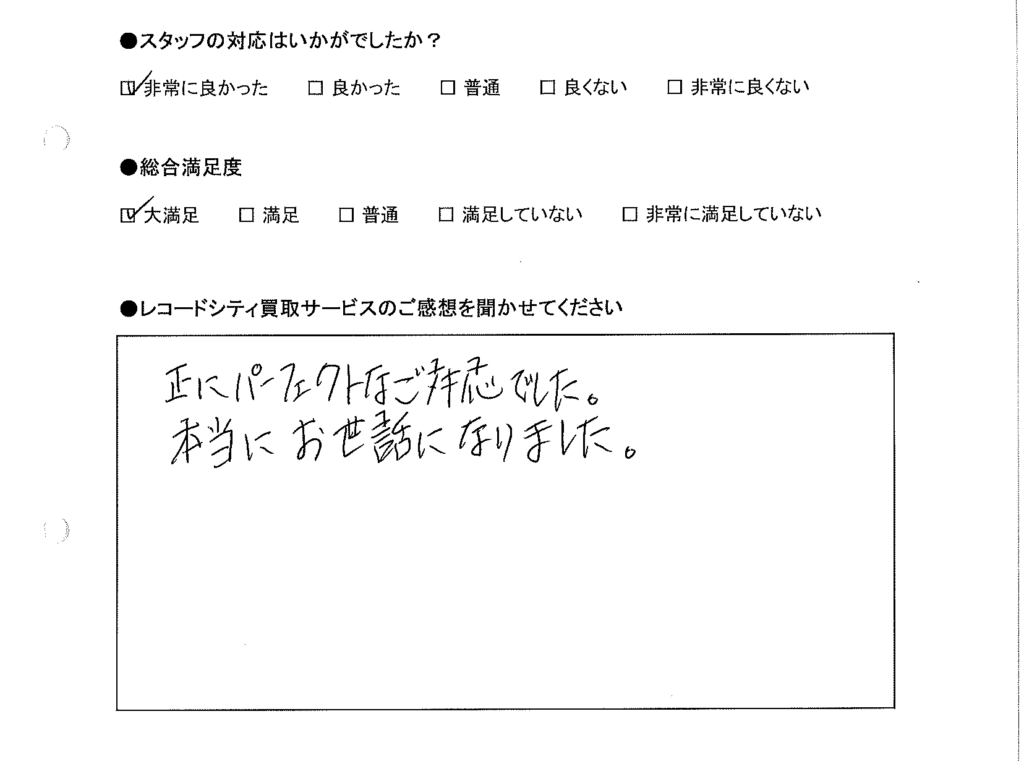 ●スタッフの対応はいかがでしたか？
☑非常に良かった □ 良かった □ 普通 □ 良くない □ 非常に良くない
●総合満足度
☑大満足 □ 満足 □ 普通 □ 満足していない □ 非常に満足していない
●レコードシティ買取サービスのご感想を聞かせてください
正にパーフェクトなご対応でした。
本当にお世話になりました。